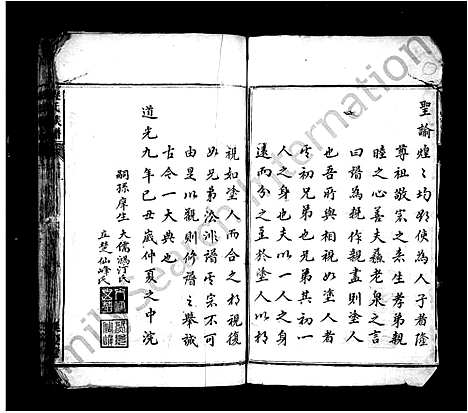 聖諭煌煌均欲使為人子者隆
尊祖敬宗之念生孝弟親
睦之心善夫蘇老泉之言
曰譜為親作親盡則塗人
也吾所與相視如塗人者
其初兄弟也兄弟其初一
人之身也夫以一人之身
遠而分之至於塗人以
視如塗人而合之
如兄弟 非譜 宗不可
由是以觀則修譜之舉誠
古今一大典也
道光九年己丑歲仲夏之中浣
嗣孫庠生 大儒 汀氏
立楚仙峰氏